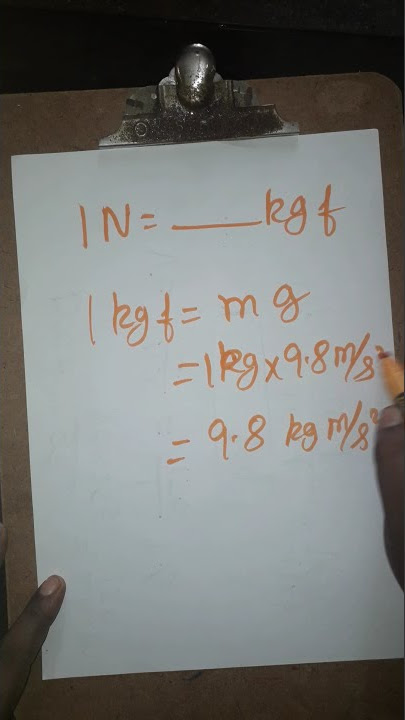 1 N = ___ kgf
1 kgf = mg
= 1kg x 9.8 m/s²
= 9.8 kg m/s²